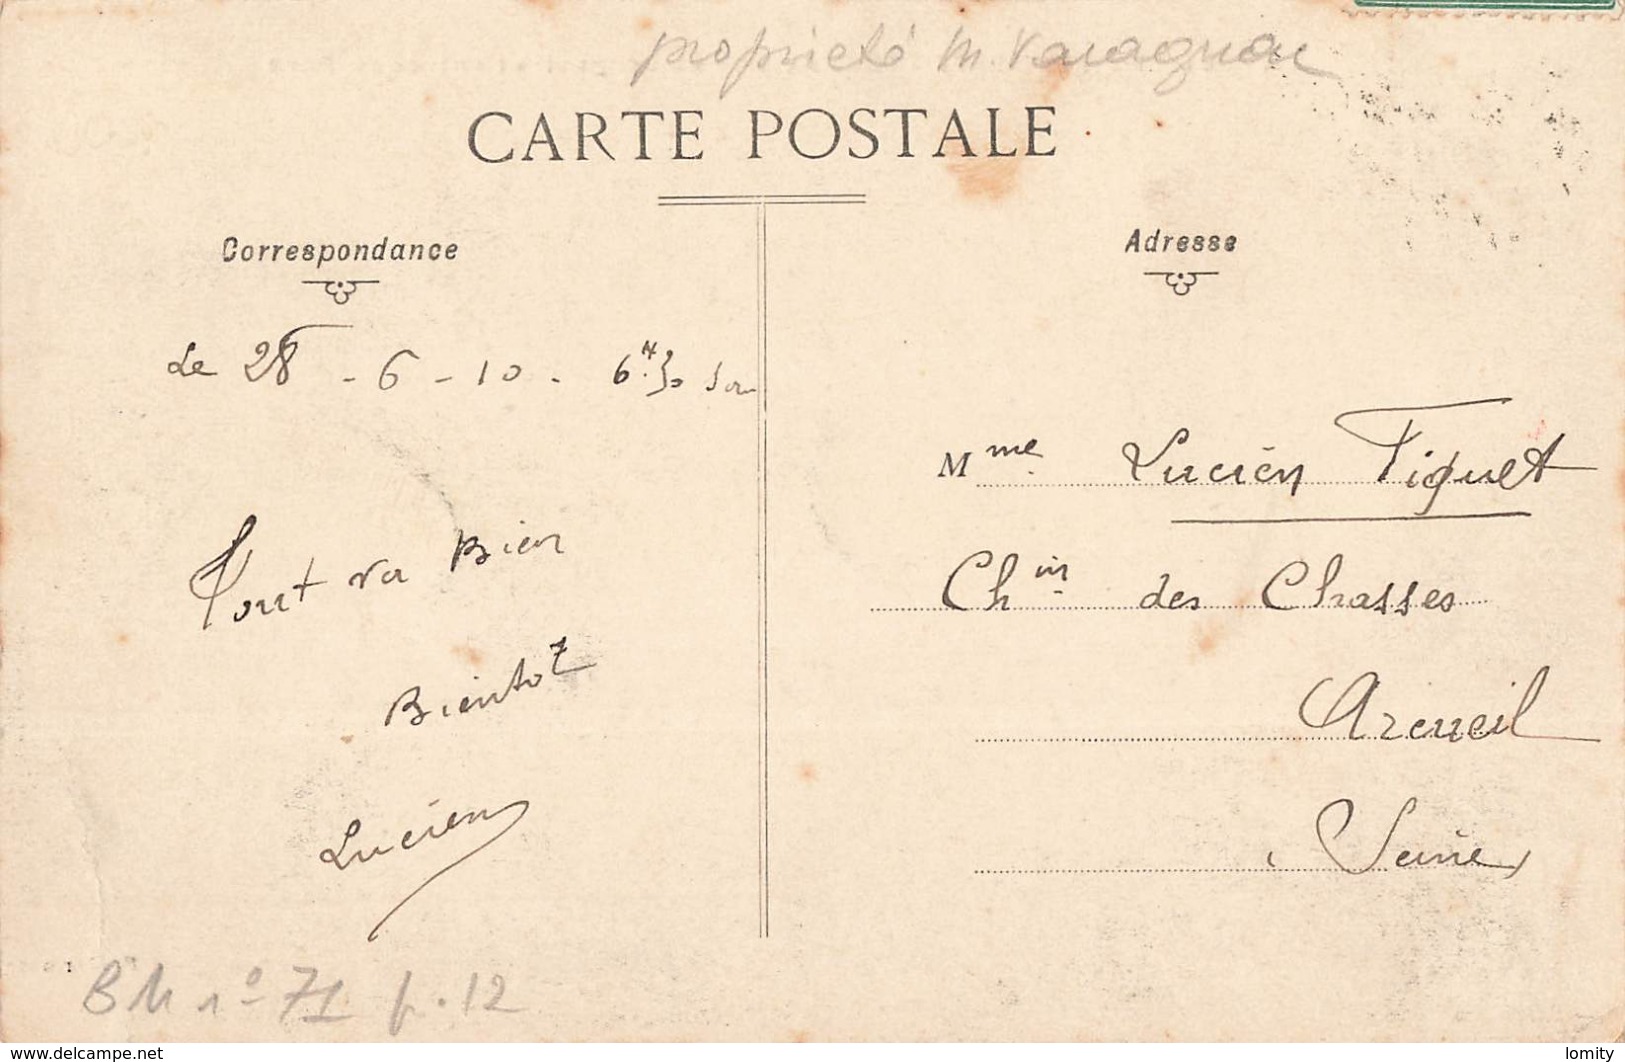 propriété M. Varagnac
CARTE POSTALE
Correspondance
Adresse
Le 28 - 6 - 10 - 6H.30 Soir
Tout va Bien
Bientot
Lucien
Mme. Lucien Tiquet
Chin. des Chasses
Arcueil
(Seine)
BM n° 71 p.12
www.delcampe.net
lomity